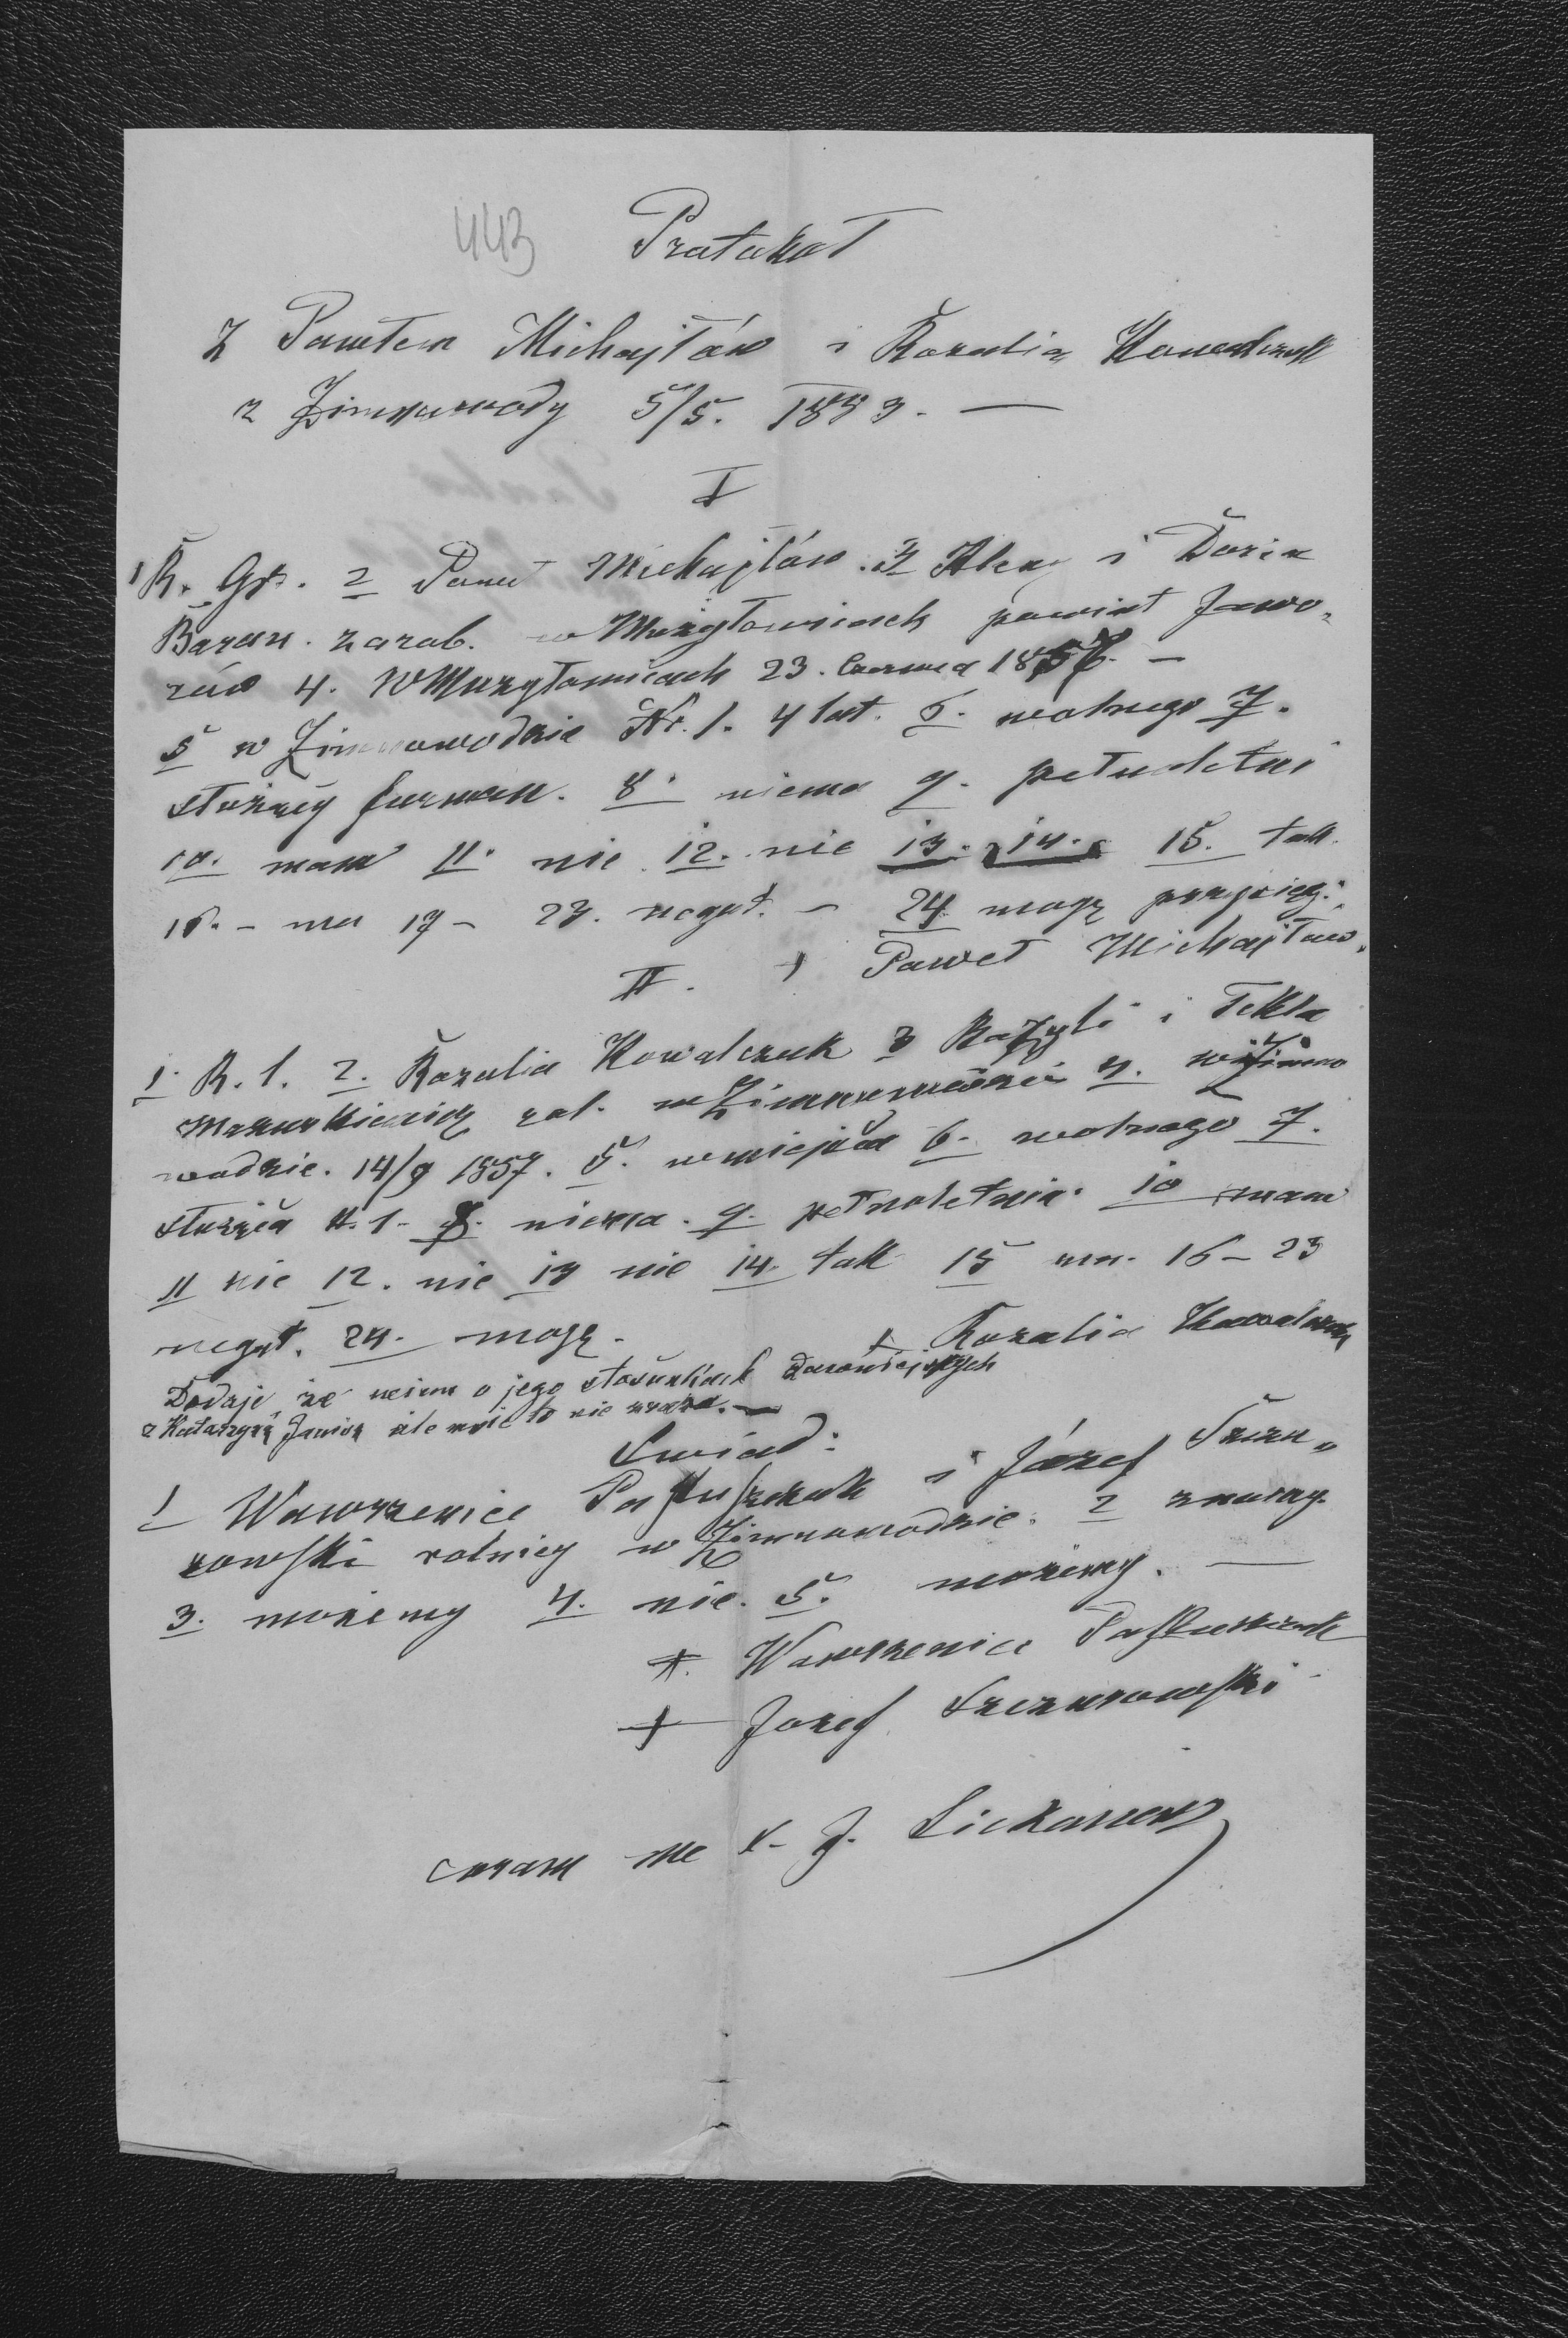 443 Protokoł
Z Pawłem Michajłów i Rozalią Kowalczuk
z Zimnawody 5/5. 1883. —
I
1 R. Gr. 2 Paweł Michajłów. 3 i Dosia
Baran. zarob. w Mużyłowicach powiat Jawo„
rów 4. W Mużyłowicach 23. Czerwca 1857. —
5 w Zimnowodzie Nr. 1. 4 lat. 6. wolnego 7.
służący furman. 8. niema 9. pełnoletni
10. mam 11. nie 12. nie 13. 14. 15. tak.
16. - ma 17 - 23. negat. - 24 mogę przysiędz.
II. + Paweł Michajłów.
1. R. l. 2. Rozalia Kowalczuk 3 Bazyli i Tekla
zal. w Zimnowodzie 4. w Zimno
wodzie. 14/9 1857. 5. w miejscu 6. wolnego 7.
służąca N. 1. 8. niema. 9. pełnoletnia. 10 mam
11 nie 12. nie 13 nie 14. tak 15 ma. 16 - 23
negat. 24. mogę.
+ Rozalia Kowalczuk
Dodaje, że o jego stosunkach
z Katarzyną ale mnie to nie zraża. —
Świad:
1 Wawrzeniec Pastuszczak i Józef Szczu„
rowski rolnicy w Zimnowodzie. 2 znamy.
3. możemy 4. nie. 5. możemy. —
+. Wawrzeniec Pastuszczak
+ Jozef Szczurowski
coram me X. J.